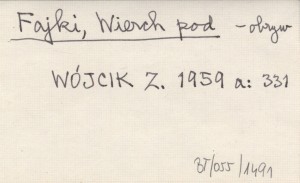 Fajki, Wierch pod - obryw
WÓJCIK Z. 1959 a: 331
BT/055/1491